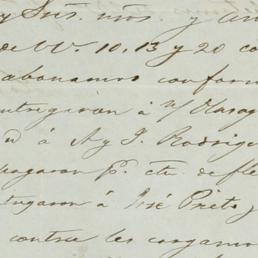 y Sres. mos. y am
de Vs. 10. 13 y 20 co
abonamos conform
entregaron á
d á A y J. Rodrigu
pagaron p. cta. de fle
tregaron á José Prieto,
contra les cargamo